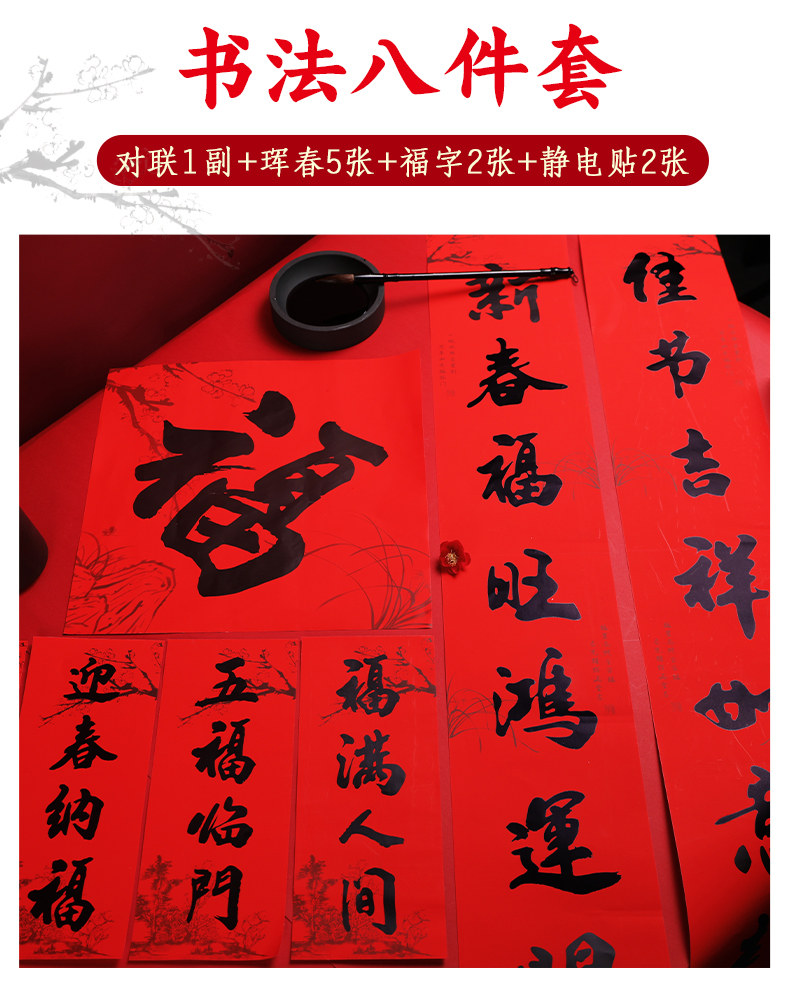 书法八件套
对联1副+珲春5张+福字2张+静电贴2张
佳节吉祥如意
新春福旺鸿運
福
迎春纳福
五福临門
福满人间